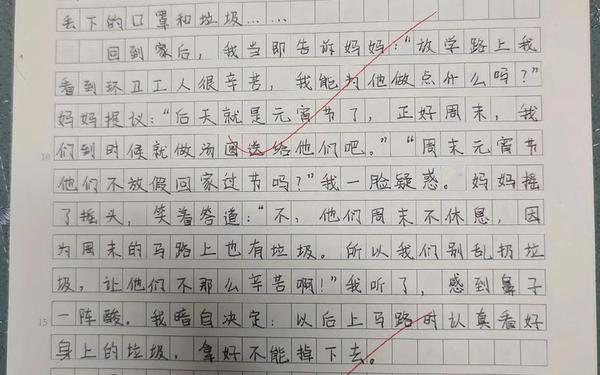 丢下的口罩和垃圾……
回到家后，我当即告诉妈妈：“放学路上我
看到环卫工人很辛苦，我能为他做点什么吗？”
妈妈提议：“后天就是元宵节了，正好周末，我
10 们到时候就做汤圆送给他们吧。”“周末元宵节
他们不放假回家过节吗？”我一脸疑惑。妈妈摇
了摇头，笑着答道：“不，他们周末不休息，因
为周末的马路上也有垃圾。所以我们别乱扔垃
圾，让他们不那么辛苦啊！”我听了，感到鼻子
15 一阵酸。我暗自决定：以后上马路时认真看好
身上的垃圾，拿好不能掉下去。